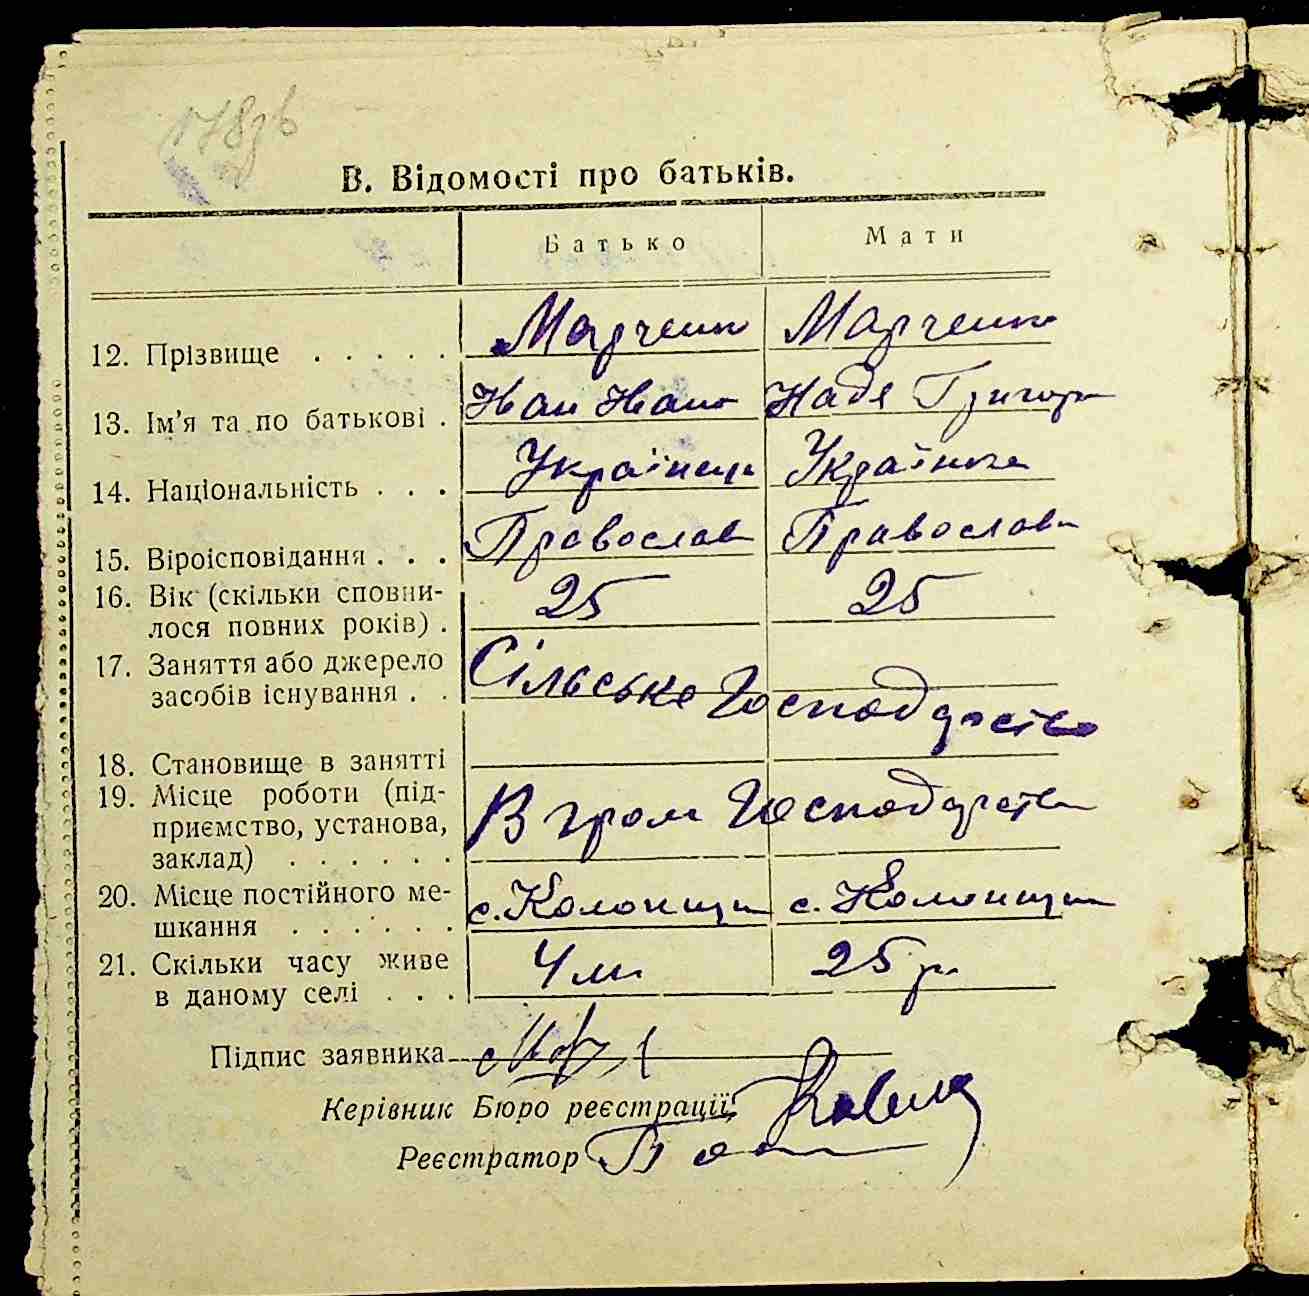 178зв
В. Відомості про батьків.
Батько Мати
12. Прізвище . . . . . Марченко Марченко
13. Ім'я та по батькові . Іван Івано Надя Григор
14. Національність . . . Українец Українка
15. Віроісповідання . . . Православ Православ
16. Вік (скільки сповни-
лося повних років) . 25 25
17. Заняття або джерело
засобів існування . . Сільське Господарство
18. Становище в занятті
19. Місце роботи (під-
приємство, установа,
заклад) . . . . . . В гром Господарстві
20. Місце постійного ме-
шкання . . . . . . с. Колонщи с. Колонщи
21. Скільки часу живе
в даному селі . . . 4 м. 25 р.
Підпис заявника
Керівник Бюро реєстрації
Реєстратор